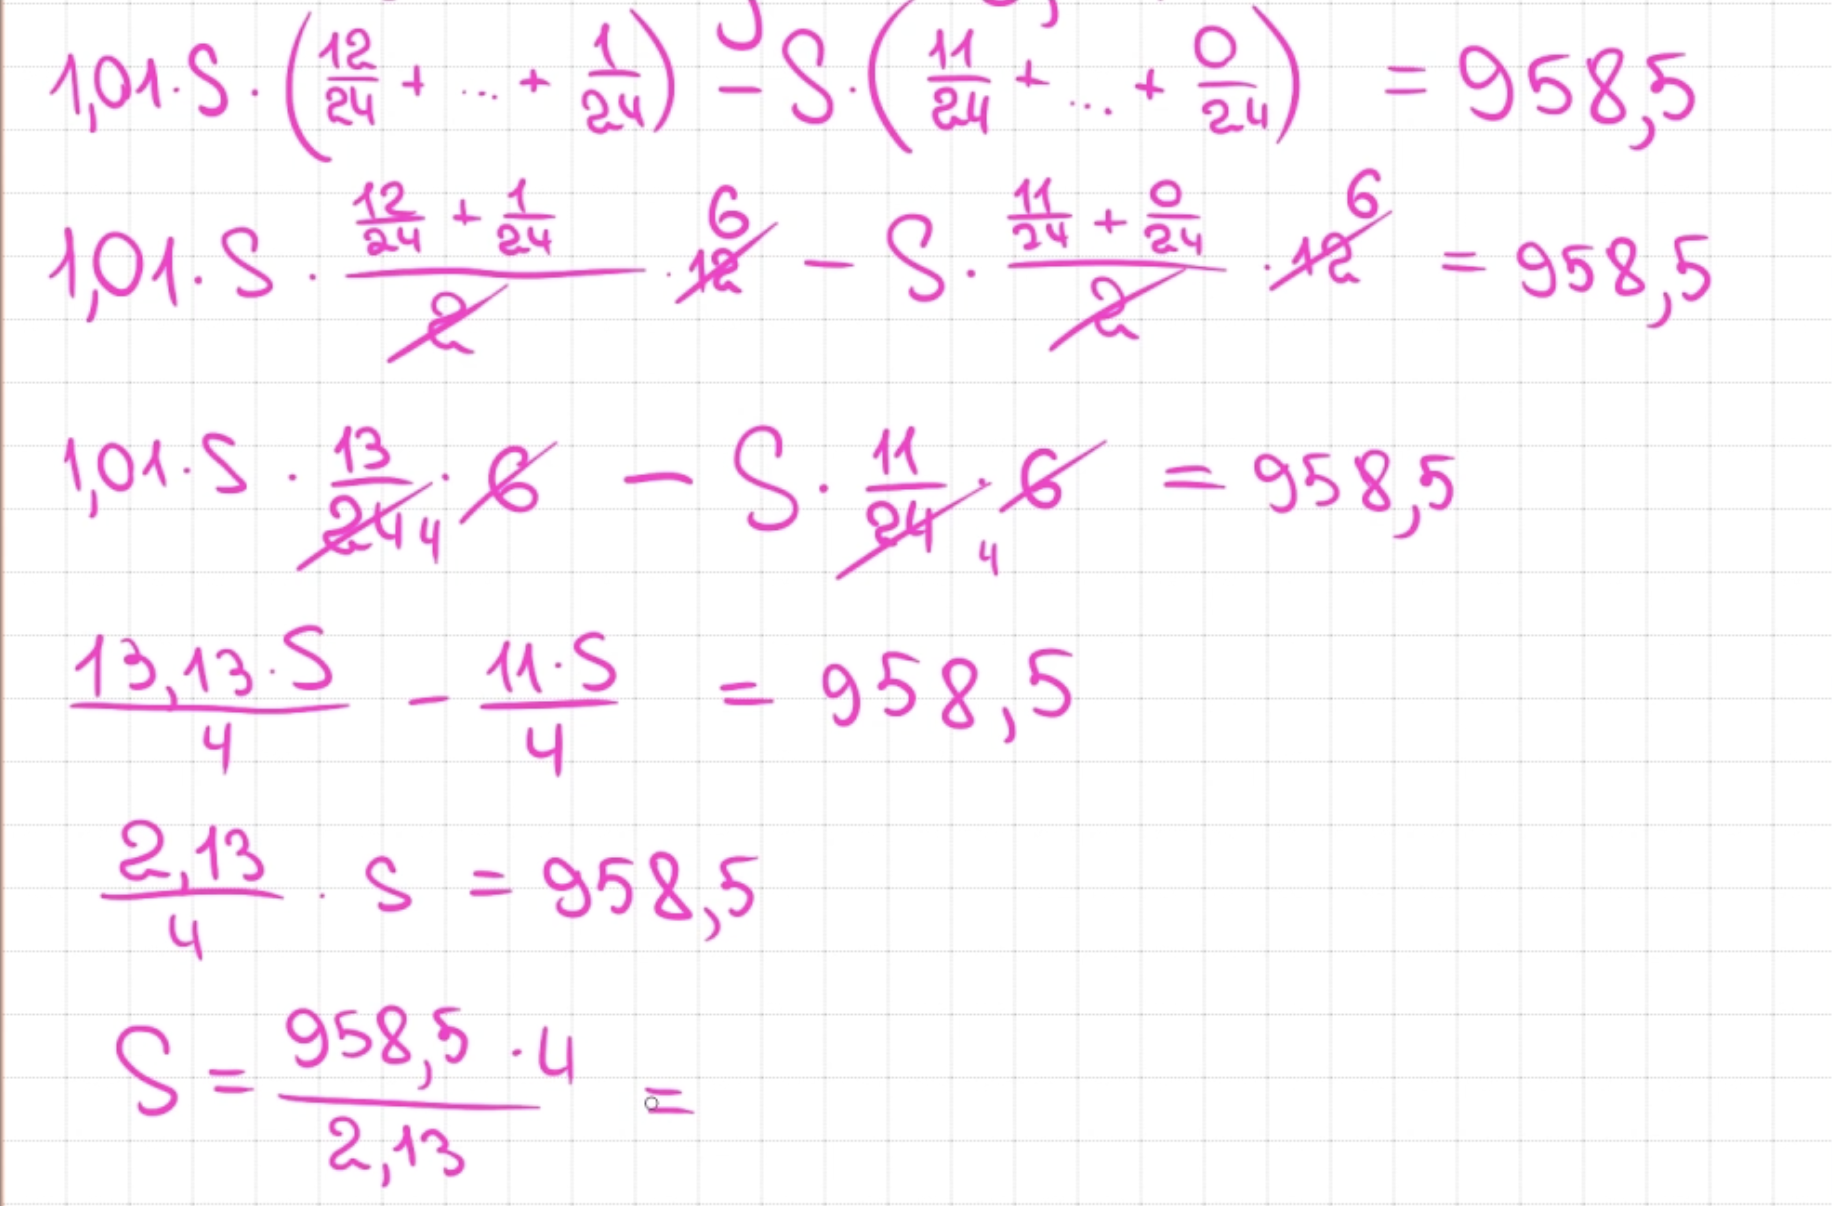 1,01·S·(12/24 + ... + 1/24) - S·(11/24 + ... + 0/24) = 958,5
1,01·S · (12/24 + 1/24)/2 · 12 6 - S · (11/24 + 0/24)/2 · 12 6 = 958,5
1,01·S · 13/24 4 · 6 - S · 11/24 4 · 6 = 958,5
13,13·S/4 - 11·S/4 = 958,5
2,13/4 · S = 958,5
S = 958,5·4/2,13 =